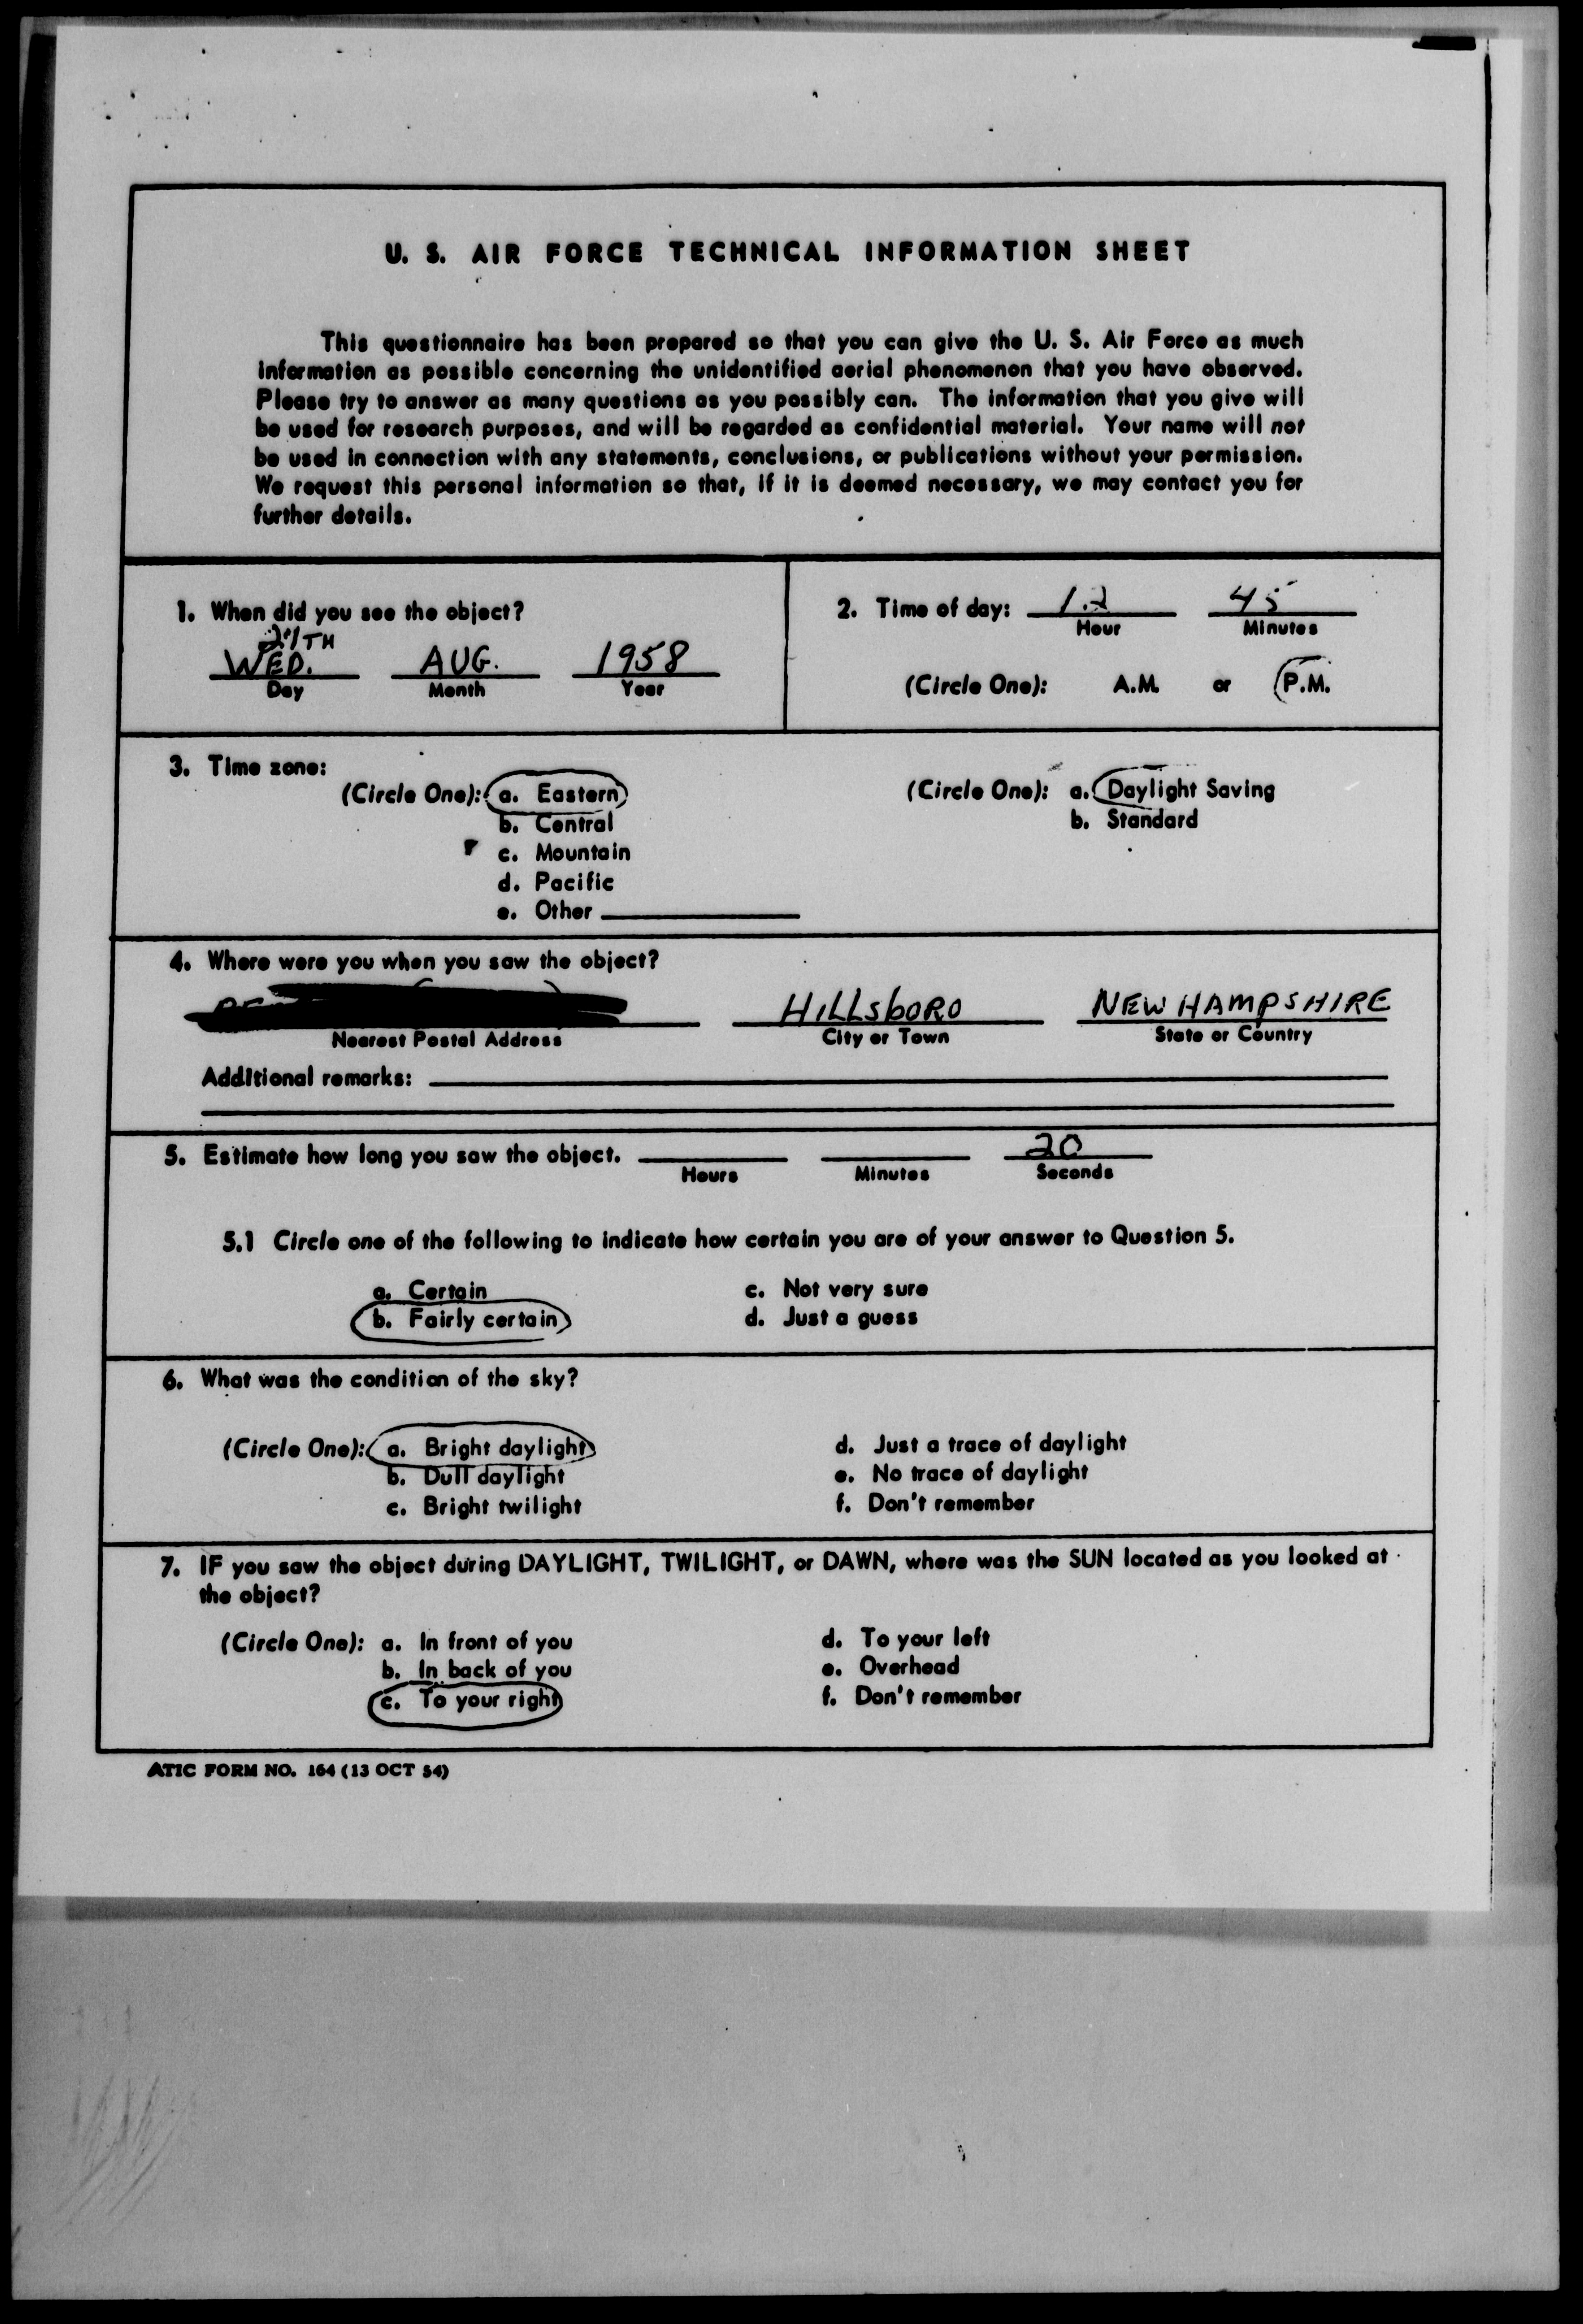 U. S. AIR FORCE TECHNICAL INFORMATION SHEET
This questionnaire has been prepared so that you can give the U. S. Air Force as much
information as possible concerning the unidentified aerial phenomenon that you have observed.
Please try to answer as many questions as you possibly can. The information that you give will
be used for research purposes, and will be regarded as confidential material. Your name will not
be used in connection with any statements, conclusions, or publications without your permission.
We request this personal information so that, if it is deemed necessary, we may contact you for
further details.
1. When did you see the object?
WED. AUG. 1958
Day Month Year
2. Time of day: 12 45
Hour Minutes
(Circle One): A.M. or P.M.
3. Time zone:
(Circle One): a. Eastern
b. Central
c. Mountain
d. Pacific
e. Other
(Circle One): a. Daylight Saving
b. Standard
4. Where were you when you saw the object?
HILLsboRO NEW HAMPSHIRE
Nearest Postal Address City or Town State or Country
Additional remarks:
5. Estimate how long you saw the object. 20
Hours Minutes Seconds
5.1 Circle one of the following to indicate how certain you are of your answer to Question 5.
a. Certain c. Not very sure
b. Fairly certain d. Just a guess
6. What was the condition of the sky?
(Circle One): a. Bright daylight d. Just a trace of daylight
b. Dull daylight e. No trace of daylight
c. Bright twilight f. Don't remember
7. IF you saw the object during DAYLIGHT, TWILIGHT, or DAWN, where was the SUN located as you looked at
the object?
(Circle One): a. In front of you d. To your left
b. In back of you e. Overhead
c. To your right f. Don't remember
ATIC FORM NO. 164 (13 OCT 54)